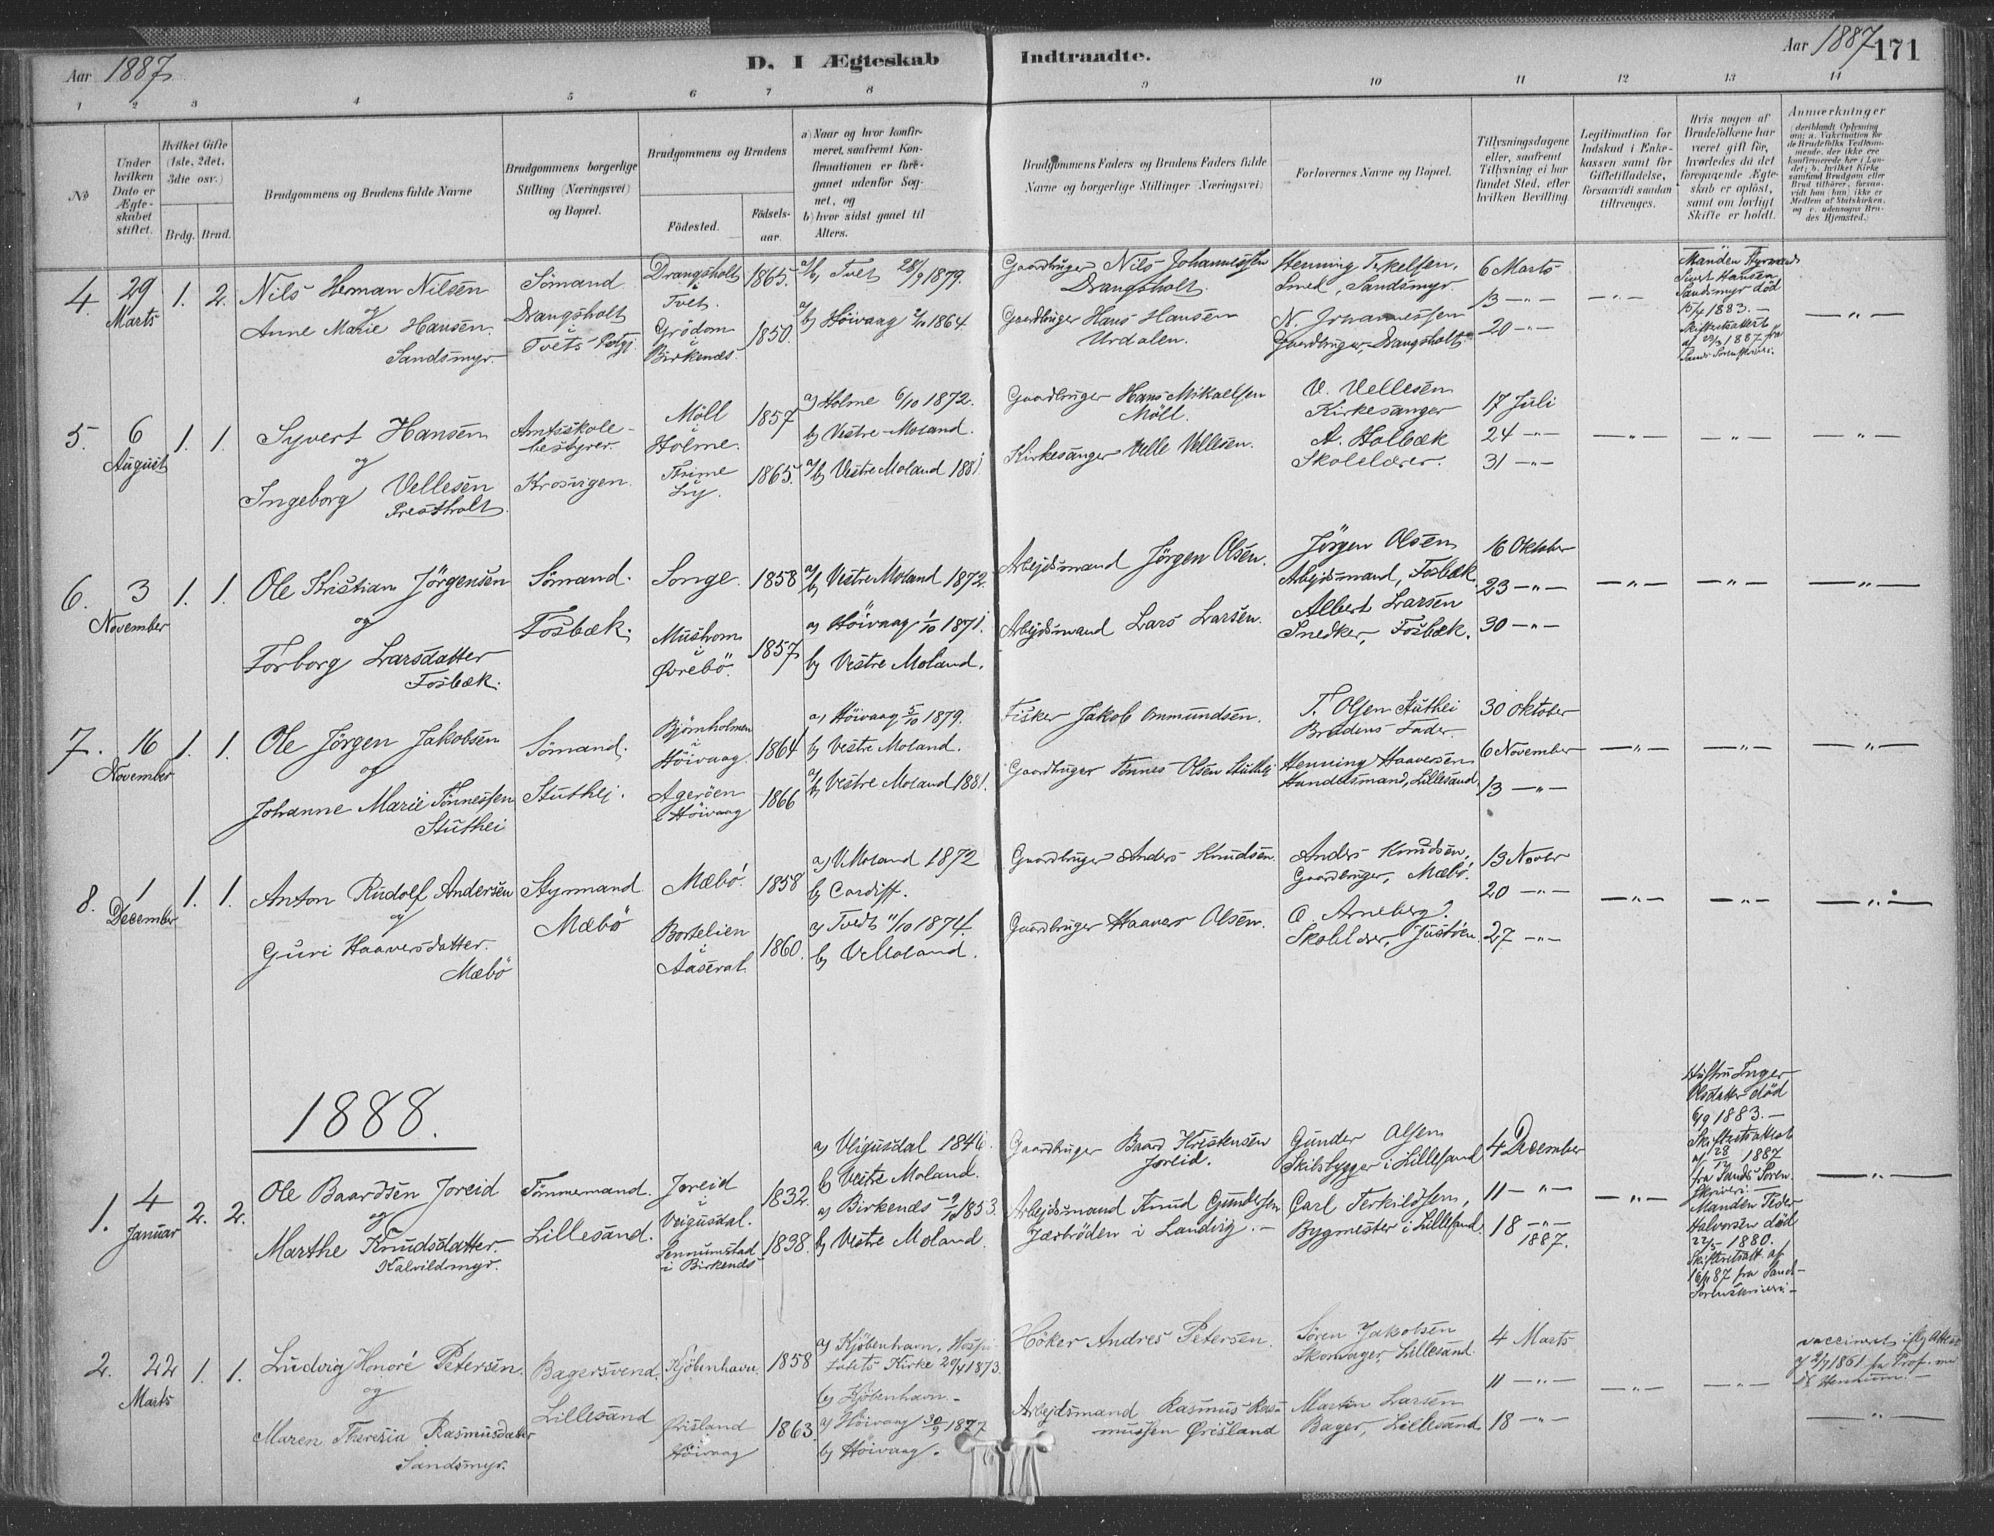 Aar 1887.
D. I Ægteskab Indtraadte.
Aar 1887 171
1 2 3 4 5 6 7 8 9 10 11 12 13 14
No
Under hvilken Dato er Ægteskabet stiftet.
Hvilket Gifte (1ste, 2det, 3die osv.)
Brdg. Brud.
Brudgommens og Brudens fulde Navne
Brudgommens borgerlige Stilling (Næringsvei) og Bopæl.
Brudgommens og Brudens
Fødested.
Fødselsaar.
a) Naar og hvor konfirmeret, saafremt Konfirmationen er foregaaet udenfor Sognet, og
b) hvor sidst gaaet til Alters.
Brudgommens Faders og Brudens Faders fulde Navne og borgerlige Stillinger (Næringsvei)
Forlovernes Navne og Bopæl.
Tillysningsdagene eller, saafremt Tillysning ei har fundet Sted, efter hvilken Bevilling
Legitimation for Indskud i Enkekassen samt for Giftetilladelse, forsaavidt saadan tiltrænges.
Hvis nogen af Brudefolkene har været gift før, hvorledes da det foregaaende Ægteskab er opløst, samt om lovligt Skifte er holdt.
Anmærkninger
4. 29 Marts 1. 2.
Nils Herman Nilsen
og
Anne Marie Hansen.
Sandsmyr.
Sömand
Drangsholt
i
Tvets Pgj.
Drangsholt
i
Tvet. 1865.
Grödom
i
Birkenæs 1850.
a/b) Tvet 28/9 1879.
a/b) Höivaag 2/10 1864.
Gaardbruger Nils Johannessen
Drangsholt.
Gaardbruger Hans Hansen
Urdalen.
Henning Terkelsen,
Smed, Sandsmyr
N. Johannessen
Gaardbruger, Drangsholt
6 Marts
13 —"—
20 —"—
—"—
Manden Styrmand
Sivert Hansen
Sandsmyr död
15/4 1883. —
Skifteattest
af 22/3 1887 fra
Sands Sorenskriveri.
—"—
5. 6 August 1. 1.
Syvert Hansen
og
Ingeborg Vellesen
Prestholt.
Amtsskole-
bestyrer.
Krosvigen.
Möll
i
Holme. 1857
Thime
Ly. 1865.
a) Holme 6/10 1872.
b) Vestre-Moland.
a/b) Vestre Moland 1881.
Gaardbruger Hans Mikaelsen
Möll.
Kirkesanger Velle Vellesen.
V. Vellesen
Kirkesanger
A. Holbæk
Skolelærer.
17 Juli
24 —"—
31 —"—
—"— —"— —"—
6. 3 November 1. 1.
Ole Kristian Jörgensen
og
Torborg Larsdatter
Fosbæk.
Sömand.
Fosbæk.
Songe. 1858
Mushom
i
Øvrebö. 1857
a/b) Vestre Moland 1872.
a) Höivaag 1/10 1871.
b) Vestre Moland.
Arbejdsmand Jörgen Olsen.
Arbejdsmand Lars Larsen.
Jörgen Olsen
Arbejdsmand, Fosbæk.
Albert Larsen
Snedker, Fosbæk.
16 Oktober
23 —"—
30 —"—
—"— —"— —"—
7. 16 November 1. 1.
Ole Jörgen Jakobsen
og
Johanne Marie Tönnessen
Stuthei
Sömand.
Stuthej.
Bjørnholmen
i
Höivaag. 1864
Agerøen
i Höivaag 1866
a) Höivaag 5/10 1879.
b) Vestre Moland.
a/b) Vestre Moland 1881.
Fisker Jakob Ommundsen.
Gaardbruger Tönnes Olsen Stuthei
T. Olsen Stuthei
Brudens Fader
Henning Haaversen
Handelsmand, Lillesand.
30 Oktober
6 November
13 —"—
—"— —"— —"—
8. 1 December 1. 1.
Anton Rudolf Andersen
og
Guri Haaversdatter.
Mæbö
Styrmand
Mæbö
Mæbö. 1858
Bortelien
i
Aaseral 1860.
a) V. Moland 1872
b) Cardiff.
a) Tvedt 11/10 1874.
b) V. Moland.
Gaardbruger Anders Knudsen.
Gaardbruger Haaver Olsen.
Anders Knudsen,
Gaardbruger, Mæbö.
O. Arneberg
Skolelærer, Justöen.
13 Novbr
20 —"—
27 —"—
—"— —"— —"—
1888.
1. 4 Januar 2. 2.
Ole Baardsen Joreid
og
Marthe Knudsdatter.
Kalvildmyr.
Tömmermand.
Lillesand.
Joreid
i
Veigusdal. 1832.
Lennumstad
i Birkenæs 1838.
a) Veigusdal 1846.
b) Vestre Moland.
a) Birkenæs 9/10 1853.
b) Vestre Moland.
Gaardbruger Baard Kristensen
Joreid.
Arbejdsmand Knud Gundersen
Jærbröden i Landvig. —
Gunder Olsen
Skibsbygger i Lillesand
Carl Terkildsen,
Bygmester i Lillesand.
4 December
11 —"—
18 —"—
1887.
—"—
Hustru Inger
Olsdatter död
6/9 1883. —
Skifteattest
af 28/12 1887
fra Sands Soren-
skriveri —
Manden Peder
Halvorsen död
22/5 1880.
Skifteattst. af
16/1 87 fra Sands
Sorenskriveri —
—"—
2. 22 Marts 1. 1.
Ludvig Honoré Petersen.
og
Maren Theresia Rasmusdatter
Sandsmyr.
Bagersvend.
Lillesand
Kjöbenhavn. 1858
Ørisland
Höivaag 1863.
a) Kjöbenhavn, Hospi-
talets Kirke 20/4 1873.
b) Kjöbenhavn —
a) Höivaag 30/9 1877
b) Höivaag.
Höker Andres Petersen.
Arbejdsmand Rasmus Ras-
mussen Ørisland
Sören Jakobsen
Skomager, Lillesand.
Martin Larsen
Bager, Lillesand
4 Marts
11 —"—
18 —"—
—"— —"—
vaccineret iflg Attest
—"—